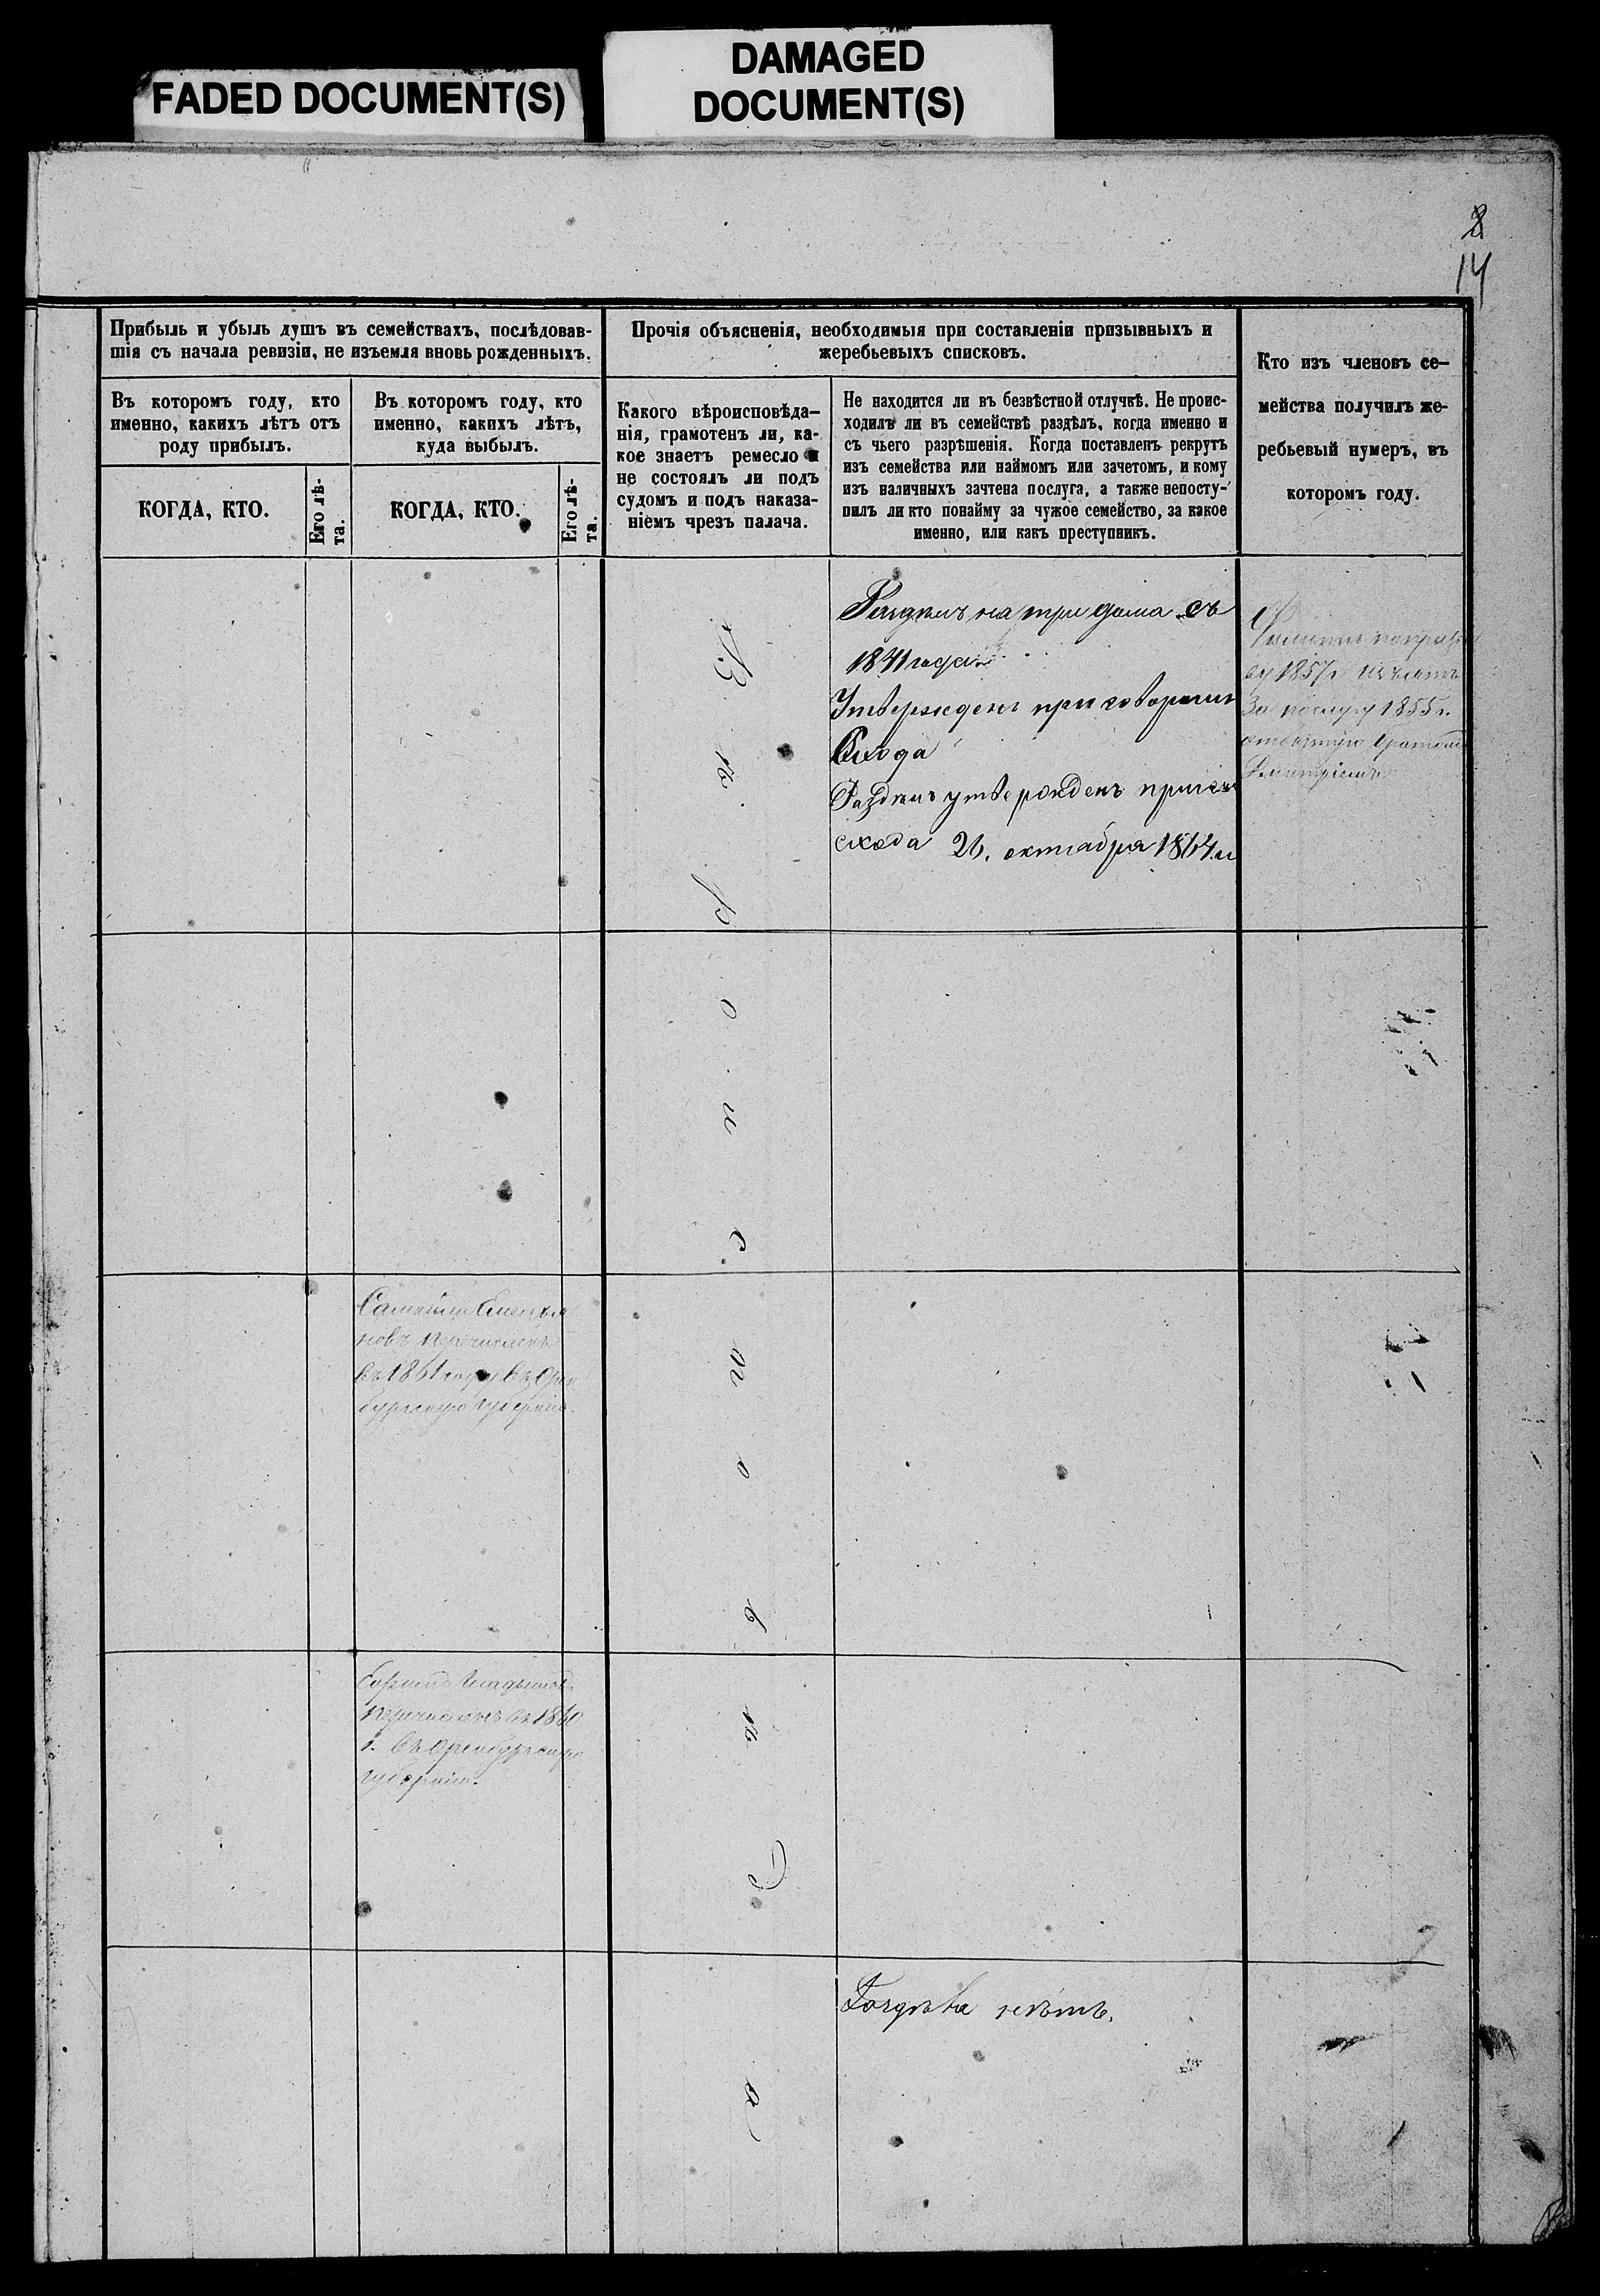 FADED DOCUMENT(S)
DAMAGED
DOCUMENT(S)
14
Прибыль и убыль душъ въ семействахъ, послѣдовав-
шія съ начала ревизіи, не изъемля вновь рожденныхъ.
Въ которомъ году, кто
именно, какихъ лѣтъ отъ
роду прибылъ.
КОГДА, КТО.
Его лѣ-
та.
Въ которомъ году, кто
именно, какихъ лѣтъ,
куда выбылъ.
КОГДА, КТО.
Его лѣ-
та.
Прочія объясненія, необходимыя при составленіи призывныхъ и
жеребьевыхъ списковъ.
Какого вѣроисповѣда-
нія, грамотенъ ли, ка-
кое знаетъ ремесло и
не состоялъ ли подъ
судомъ и подъ наказа-
ніемъ чрезъ палача.
Не находится ли въ безвѣстной отлучкѣ. Не проис-
ходилъ ли въ семействѣ раздѣлъ, когда именно и
съ чьего разрѣшенія. Когда поставленъ рекрутъ
изъ семейства или наймомъ или зачетомъ, и кому
изъ наличныхъ зачтена послуга, а также непосту-
пилъ ли кто понайму за чужое семейство, за какое
именно, или какъ преступникъ.
Кто изъ членовъ се-
мейства получилъ же-
ребьевый нумеръ, въ
которомъ году.
Раздѣлъ на три дома съ
1841 года
Утвержденъ приговоромъ
Схода
Раздѣлъ утвержденъ
схода 26. октября 1864
1857г
За послугу 1855г.
братомъ
перечисленъ
въ 1861 году въ Орен
бургскую губернію.
перечисленъ въ 1860
г. въ Оренбургскую
губернію.
Раздѣла нѣтъ.